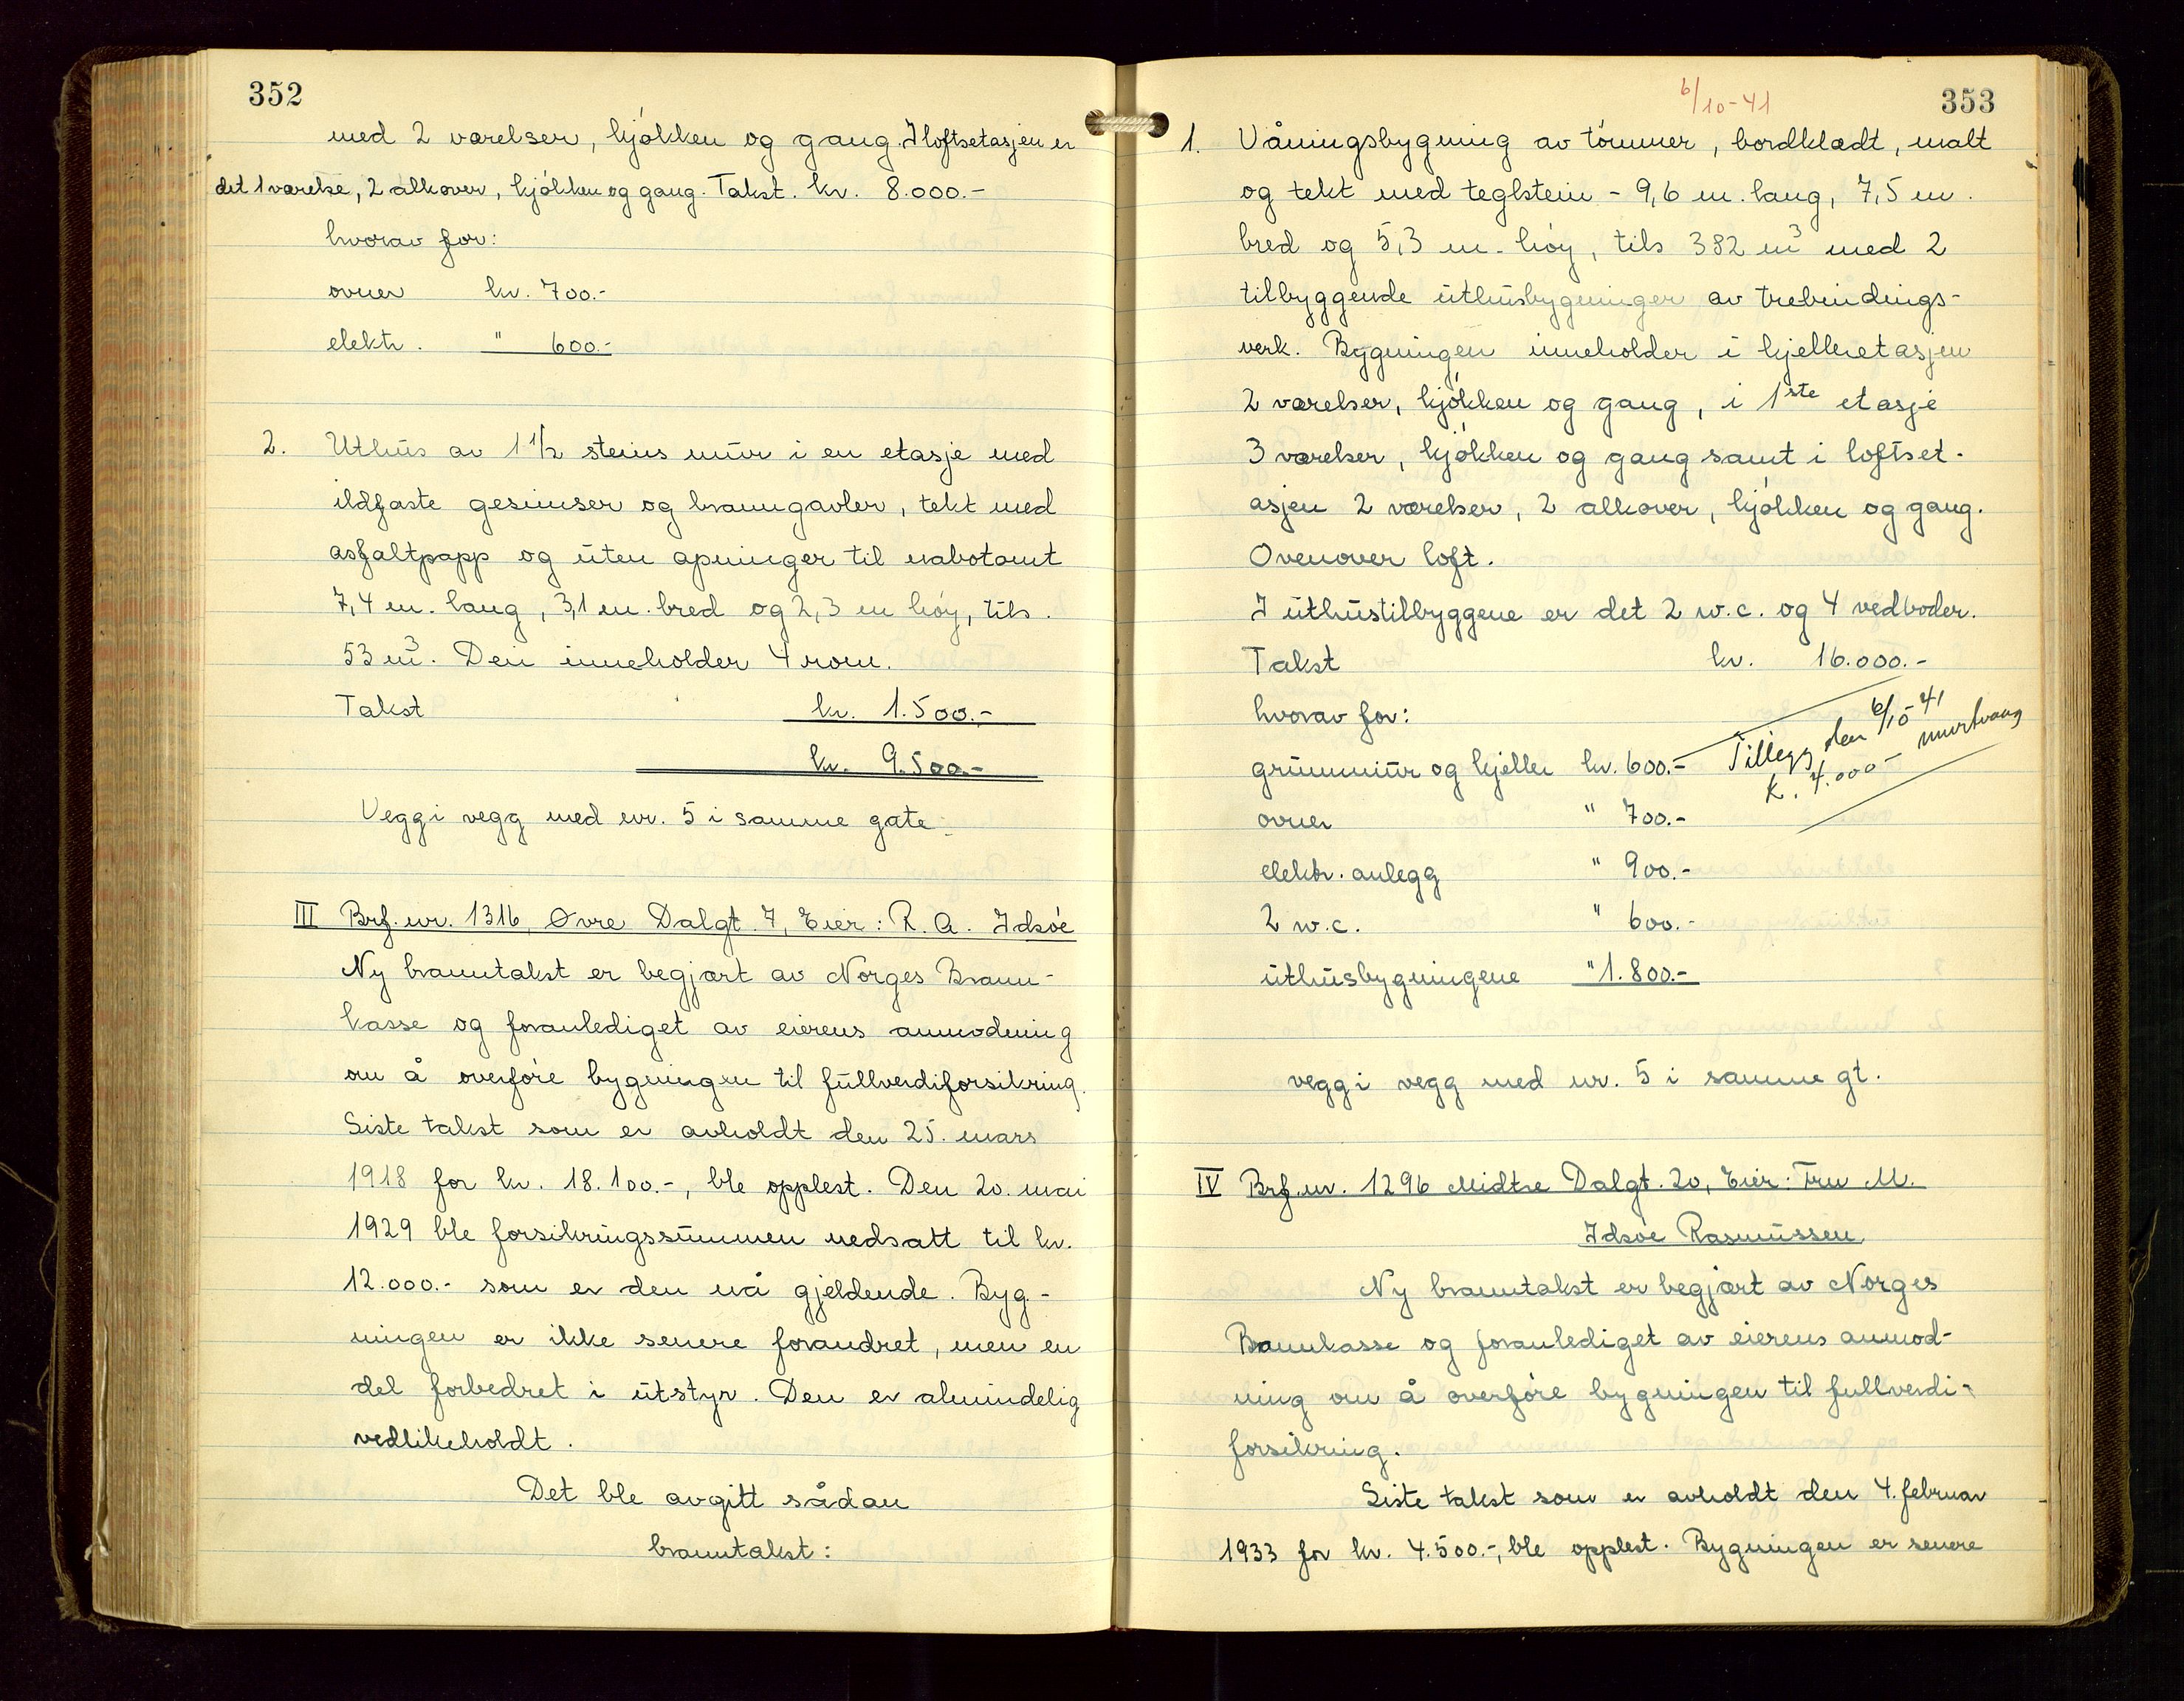 352
med 2 værelser, kjøkken og gang. I loftsetasjen er
det 1 værelse, 2 alkover, kjøkken og gang. Takst. kr. 8.000.-
hvorav for:
ovner kr. 700.-
elektr. " 600.-
2. Uthus av 1 1/2 steins mur i en etasje med
ildfaste gesimser og branngavler, tekt med
asfaltpapp og uten apninger til nabotomt
7,4 m. lang, 3,1 m. bred og 2,3 m høy, tils.
53 m3. Den inneholder 4 rom.
Takst kr. 1.500.-
kr. 9.500.-
Vegg i vegg med nr. 5 i samme gate.
III Brf. nr. 1316, Øvre Dalgt. 7, Eier: R. A. Idsøe
Ny branntakst er begjært av Norges Brann-
kasse og foranlediget av eierens anmodning
om å overføre bygningen til fullverdiforsikring.
Siste takst som er avholdt den 25. mars
1918 for kr. 18.100.-, ble opplest. Den 20. mai
1929 ble forsikringssummen nedsatt til kr.
12.000.- som er den nå gjeldende. Byg-
ningen er ikke senere forandret, men en
del forbedret i utstyr. Den er almindelig
vedlikeholdt.
Det ble avgitt sådan
branntakst:
6/10-41
353
1. Våningsbygning av tømmer, bordklædt, malt
og tekt med teglstein - 9,6 m. lang, 7,5 m.
bred og 5,3 m. høy, tils 382 m3 med 2
tilbyggende uthusbygninger av trebindings-
verk. Bygningen inneholder i kjelleretasjen
2 værelser, kjøkken og gang, i 1ste etasje
3 værelser, kjøkken og gang samt i loftset-
asjen 2 værelser, 2 alkover, kjøkken og gang.
Ovenover loft.
I uthustilbyggene er det 2 w.c. og 4 vedboder.
Takst kr. 16.000.-
hvorav for:
grunnmur og kjeller kr. 600.-
Tillegg den 6/10-41
k. 4.000-
ovner " 700.-
elektr. anlegg " 900.-
2 w.c. " 600.-
uthusbygningene " 1.800.-
vegg i vegg med nr. 5 i samme gt.
IV Brf. nr. 1296 Midtre Dalgt. 20, Eier: Fru M.
Idsøe Rasmussen.
Ny branntakst er begjært av Norges
Brannkasse og foranlediget av eierens anmod-
ning om å overføre bygningen til fullverdi-
forsikring.
Siste takst som er avholdt den 4. februar
1933 for kr. 4.500.-, ble opplest. Bygningen er senere